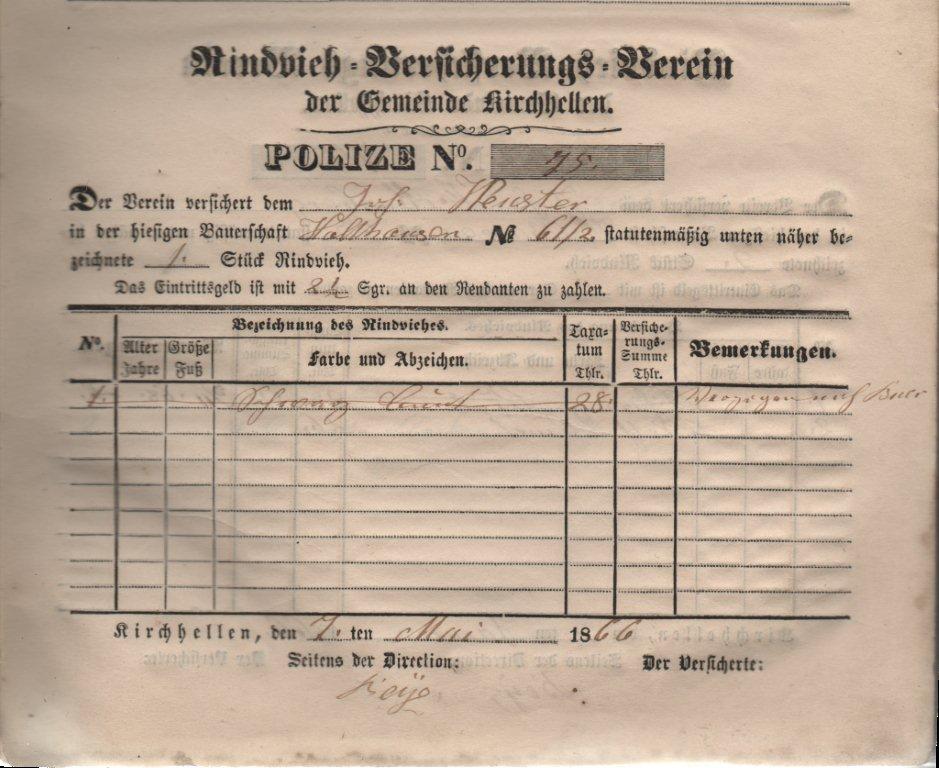 Rindvieh-Versicherungs-Verein
der Gemeinde Kirchhellen.
POLIZE No. 75.
Der Verein versichert dem Joh. Heuster
in der hiesigen Bauerschaft Holthausen No 61/2 statutenmäßig unten näher be-
zeichnete 1. Stück Rindvieh.
Das Eintrittsgeld ist mit Sgr. an den Rendanten zu zahlen.
No. Alter Jahre Größe Fuß Bezeichnung des Rindviehes. Farbe und Abzeichen. Taxa-tum Thlr. Versiche-rungs-Summe Thlr. Bemerkungen.
1. Schwarz bunt 28 Verzogen nach Buer
Kirchhellen, den 7. ten Mai 1866
Seitens der Direction: Der Versicherte: